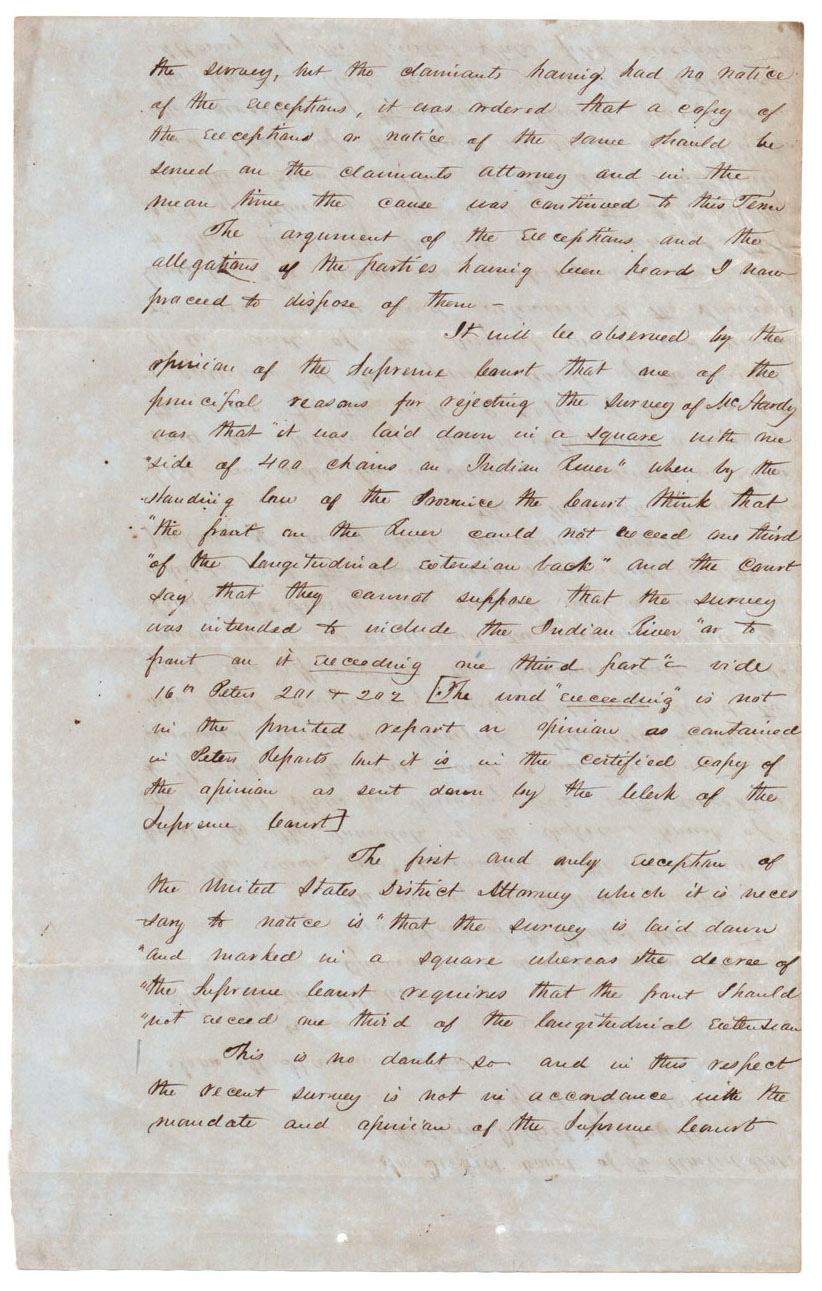 the survey, but the claimants having had no notice
of the exceptions, it was ordered that a copy of
the exceptions or notice of the same should be
served on the claimants attorney and in the
mean time the cause was continued to this Term
The argument of the exceptions and the
allegations of the parties having been heard I now
proceed to dispose of them –
It will be observed by the
opinion of the Supreme Court that one of the
principal reasons for rejecting the survey of McHardy
was that "it was laid down in a square with one
"side of 400 chains on Indian River" when by the
standing law of the Province the Court think that
"the front on the River could not exceed one third
"of the longitudinal extension back" and the Court
say that they cannot suppose that the survey
was intended to include the Indian River "or to
front on it exceeding one third part" &c vide
16th Peters 201 & 202 [The word "exceeding" is not
in the printed report or opinion as contained
in Peters Reports but it is in the certified copy of
the opinion as sent down by the Clerk of the
Supreme Court]
The first and only exception of
the United States District Attorney which it is neces
sary to notice is "that the survey is laid down
"and marked in a square whereas the decree of
"the Supreme Court requires that the front should
"not exceed one third of the longitudinal extension
This is no doubt so and in this respect
the recent survey is not in accordance with the
mandate and opinion of the Supreme Court